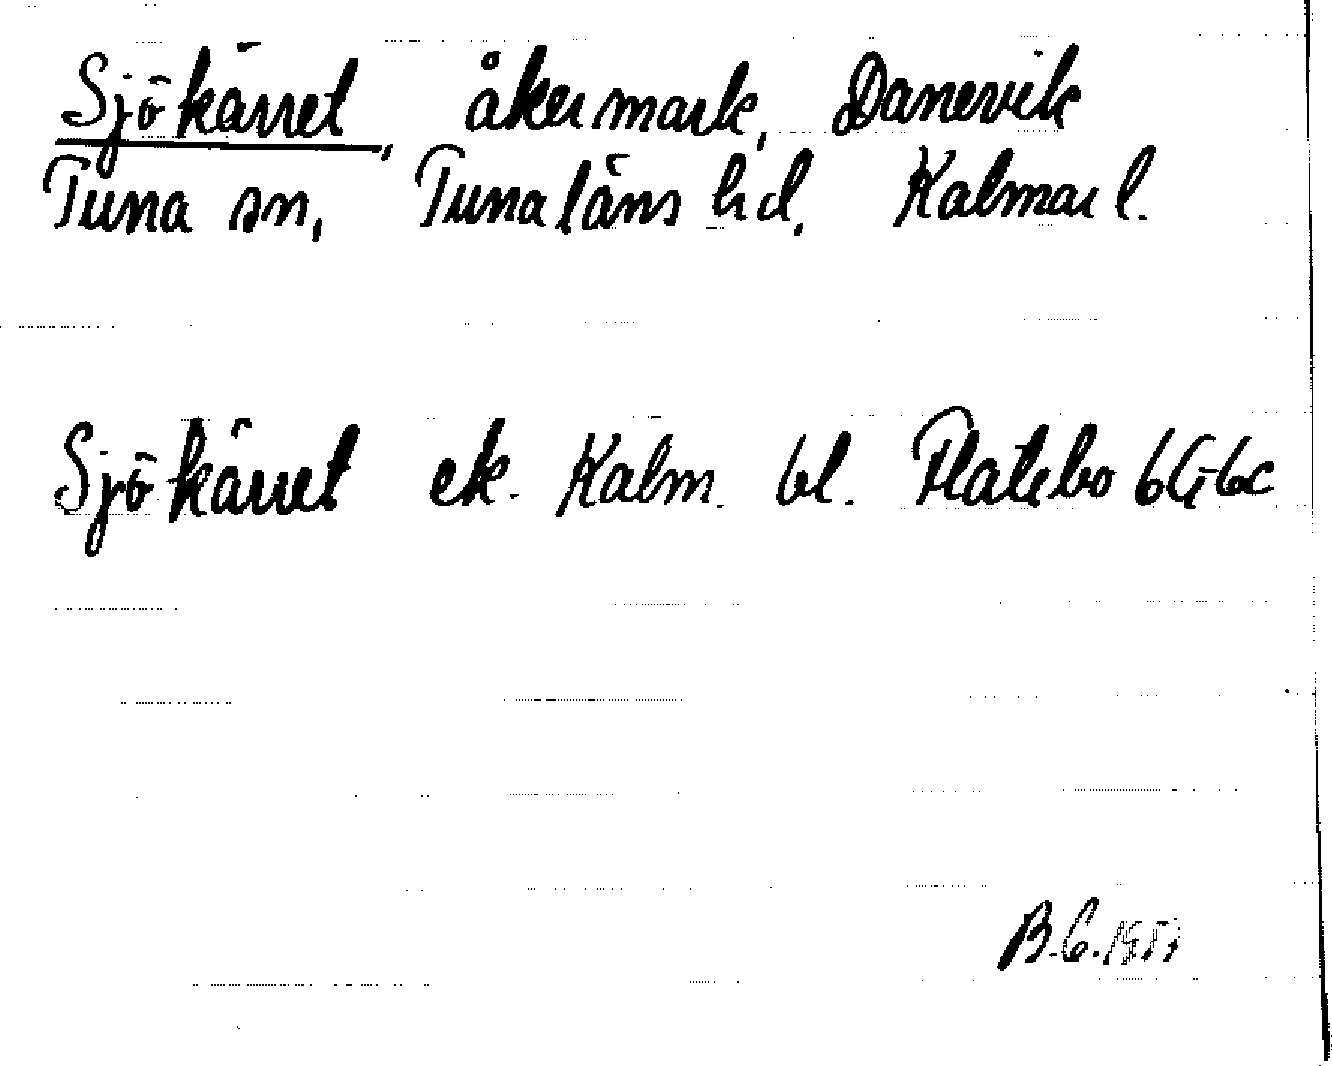 Sjökärret, åkermark, Danevik
Tuna sn, Tunaläns hd, Kalmar l.
Sjökärret ek. Kalm. bl. Flatebo 6G6c
B.C.